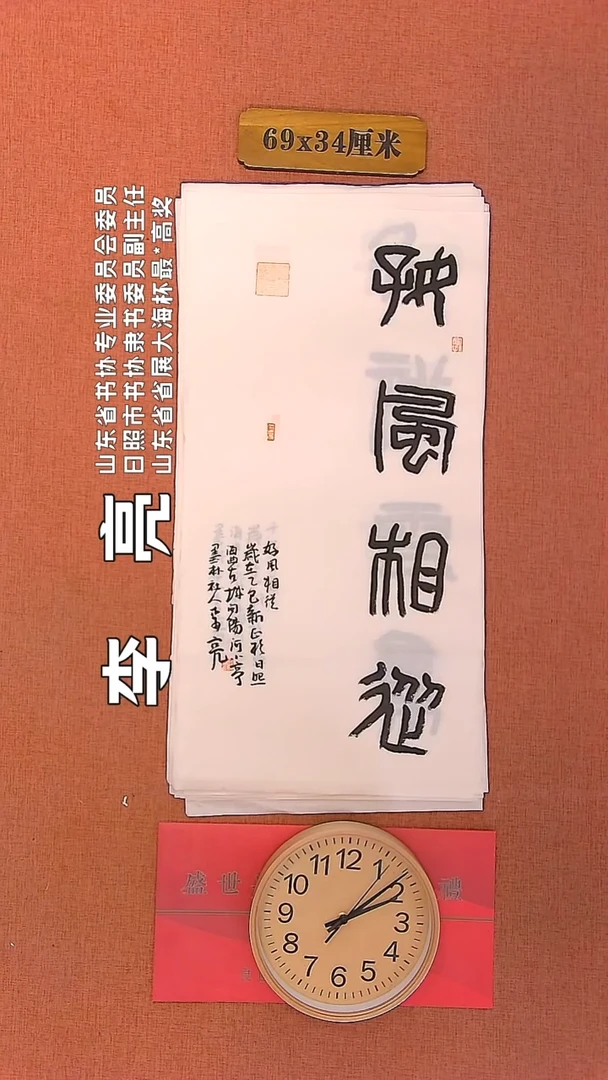 69x34厘米
山东省书协专业委员会委员
日照市书协隶书委员副主任
山东省省展大海杯最*高奖
李亮
好
風
相
從
好风相从
岁在乙巳新正于日照
西古城向阳河小亭
李亮
盛世
禮
12
1
2
3
4
5
6
7
8
9
10
11